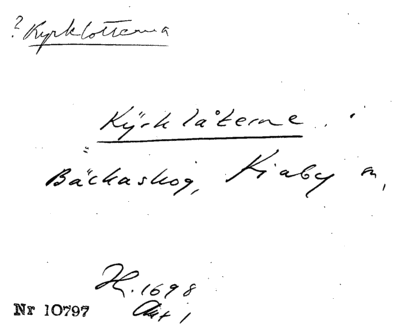 ? Kyrklotterna
Kyrklåterne.
Bäckaskog, Kiaby sn,
H. 1698
Akt 1
Nr 10797